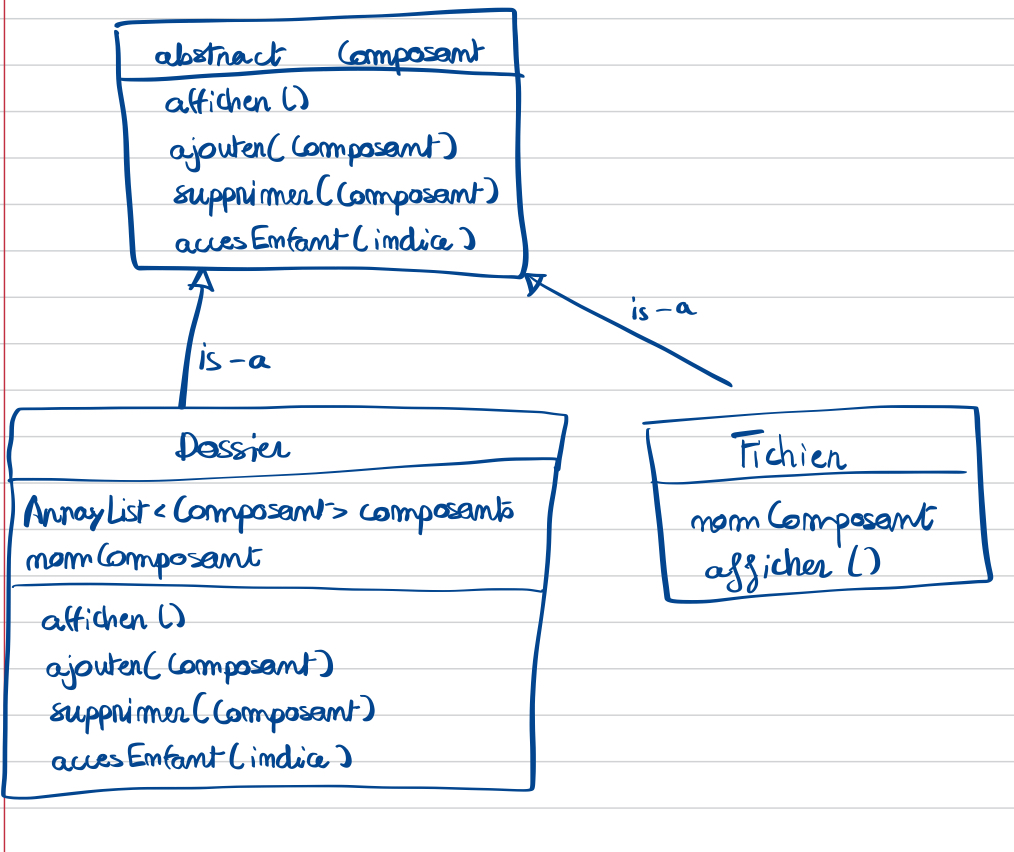 abstract Composant
afficher ()
ajouter( Composant)
supprimer (Composant)
acces Enfant (indice)
is-a
is-a
Dossier
ArrayList < Composant > composants
nomComposant
afficher ()
ajouter( Composant)
supprimer (Composant)
acces Enfant (indice)
Fichier
nom Composant
afficher ()